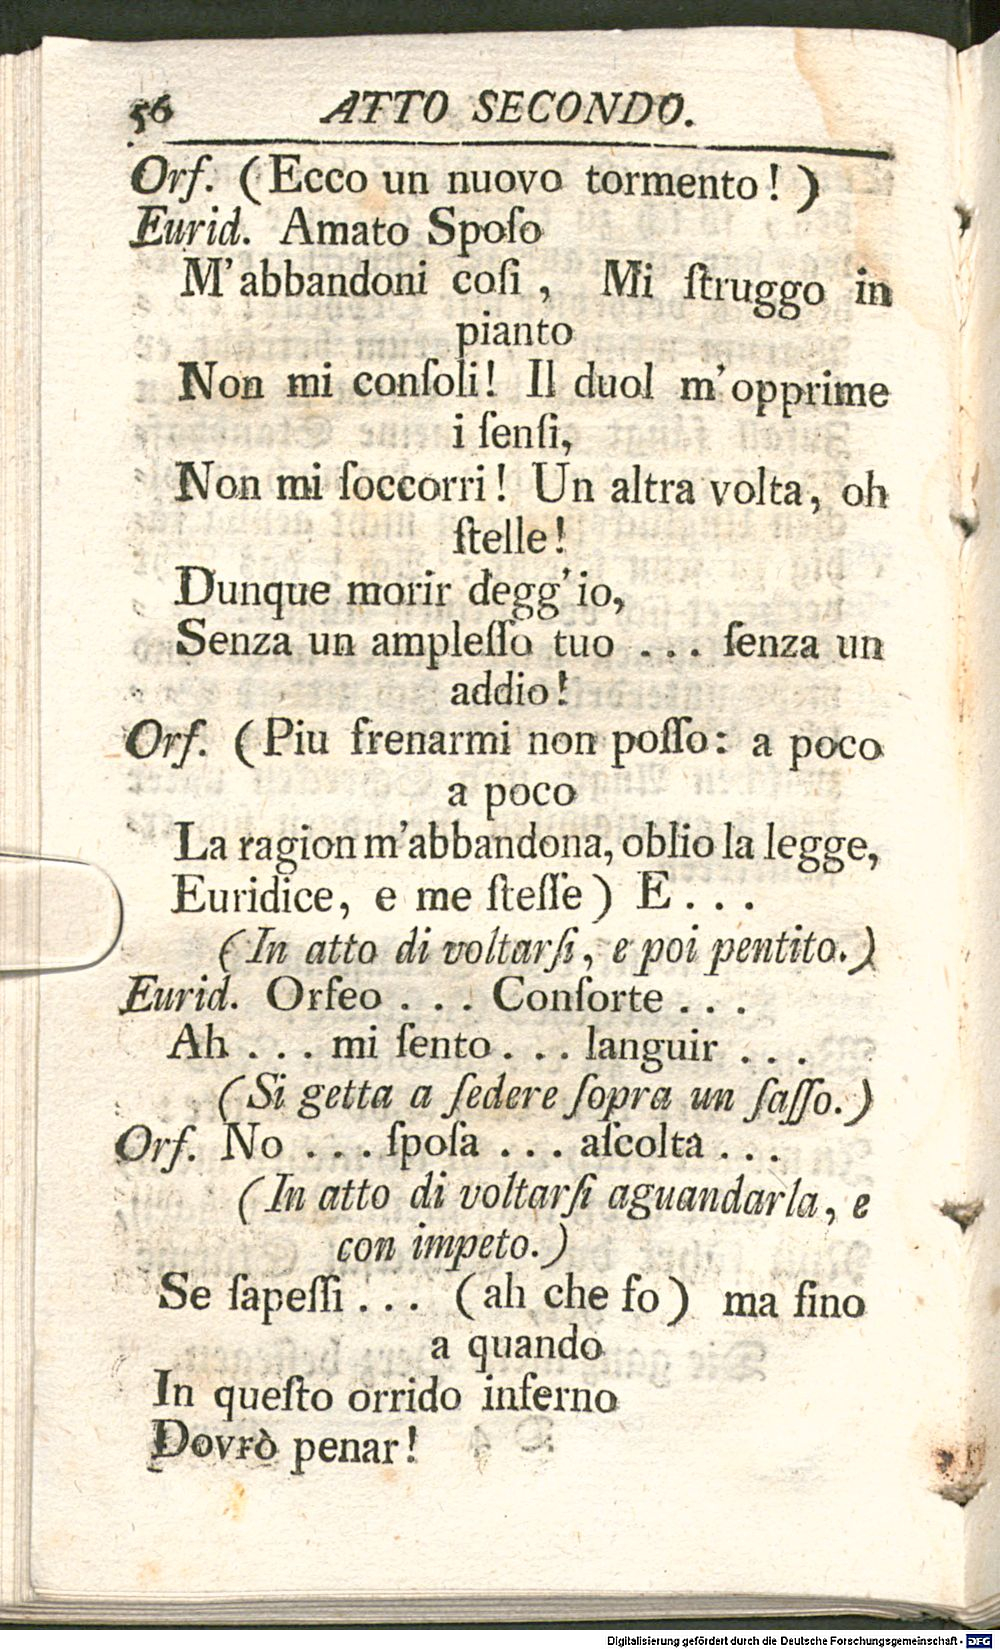 56 ATTO SECONDO.
Orſ. (Ecco un nuovo tormento!)
Eurid. Amato Spoſo
M'abbandoni coſi, Mi ſtruggo in
pianto
Non mi conſoli! Il duol m'opprime
i ſenſi,
Non mi ſoccorri! Un altra volta, oh
ſtelle!
Dunque morir degg'io,
Senza un ampleſſo tuo ... ſenza un
addio!
Orf. (Piu frenarmi non poſſo: a poco
a poco
La ragion m'abbandona, oblio la legge,
Euridice, e me ſteſſe) E...
(In atto di voltarſi, e poi pentito.)
Eurid. Orfeo ... Conſorte...
Ah ... mi ſento... languir ...
(Si getta a ſedere ſopra un ſaſſo.)
Orf. No ... ſpoſa ... aſcolta ...
(In atto di voltarſi aguandarla, e
con impeto.)
Se ſapeſſi ... (ah che fo) ma fino
a quando
In queſto orrido inferno
Dovrò penar!
Digitalisierung gefördert durch die Deutsche Forschungsgemeinschaft - DFG